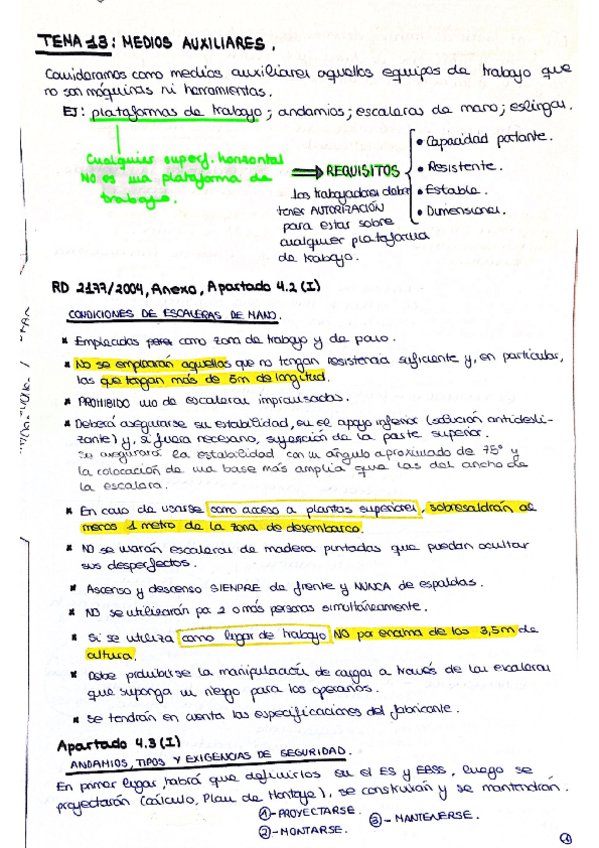 TEMA 13: MEDIOS AUXILIARES.
Consideramos como medios auxiliares aquellos equipos de trabajo que
no son máquinas ni herramientas.
EJ: plataformas de trabajo; andamios; escaleras de mano; eslingas.
Cualquier superf. horizontal
NO es una plataforma de
trabajo.
REQUISITOS
• Capacidad portante.
• Resistente.
• Estable.
• Dimensiones.
Los trabajadores deben
tener AUTORIZACIÓN
para estar sobre
cualquier plataforma
de trabajo.
RD 2177/2004, Anexo, Apartado 4.2 (I)
CONDICIONES DE ESCALERAS DE MANO.
* Empleadas como zona de trabajo y de paso.
* No se emplearán aquellas que no tengan resistencia suficiente y, en particular,
las que tengan más de 5m de longitud.
* PROHIBIDO uso de escaleras improvisadas.
* Deberá asegurarse su estabilidad, en el apoyo inferior (solución antidesli-
zante) y, si fuera necesario, sujeción de la parte superior.
Se asegurará la estabilidad con un ángulo aproximado de 75° y
la colocación de una base más amplia que las del ancho de
la escalera.
* En caso de usarse como acceso a plantas superiores, sobresaldrán al
menos 1 metro de la zona de desembarco.
* NO se usarán escaleras de madera pintadas que puedan ocultar
sus desperfectos.
* Ascenso y descenso SIEMPRE de frente y NUNCA de espaldas.
* NO se utilizarán por 2 o más personas simultáneamente.
* Si se utiliza como lugar de trabajo NO por encima de los 3,5m de
altura.
* Debe prohibirse la manipulación de cargas a través de las escaleras
que suponga un riesgo para los operarios.
* Se tendrán en cuenta las especificaciones del fabricante.
Apartado 4.3 (I)
ANDAMIOS, TIPOS Y EXIGENCIAS DE SEGURIDAD.
En primer lugar, habrá que definirlos en el ES y EBSS, luego se
proyectarán (cálculo, Plan de Montaje), se construirán y se mantendrán.
①- PROYECTARSE.
②- MONTARSE.
③- MANTENERSE.
①